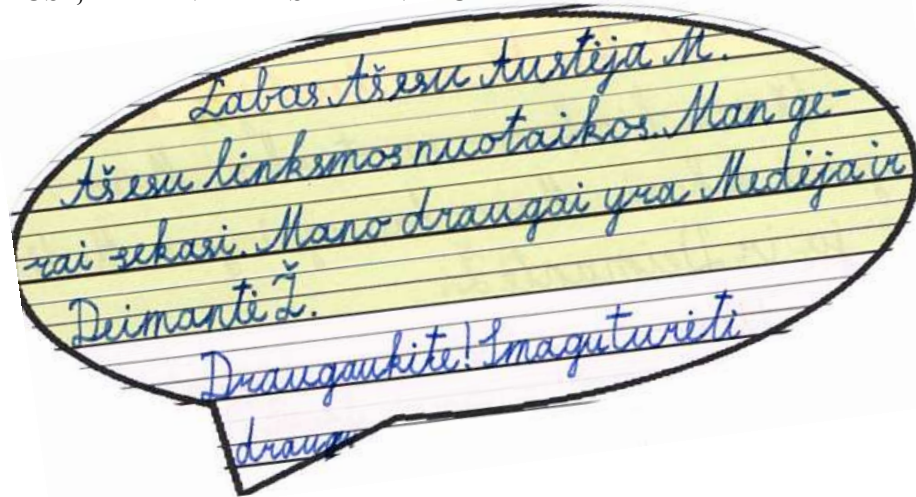 Labas Ašesu Austėja M.
Ašesu linksmos nuotaikos. Man ge-
rai sekasi. Mano draugai yra Medėja ir
Deimantė Ž.
Draugaukite! Smaguturėti